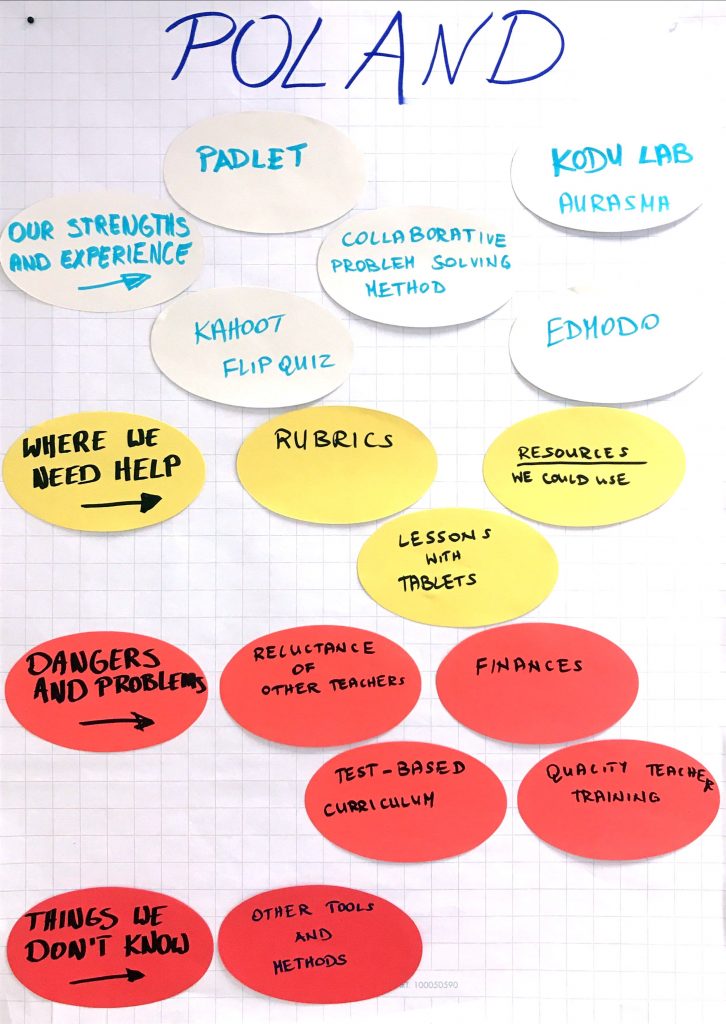 POLAND
PADLET
KODU LAB
AURASMA
OUR STRENGTHS
AND EXPERIENCE
COLLABORATIVE
PROBLEM SOLVING
METHOD
KAHOOT
FLIP QUIZ
EDMODO
WHERE WE
NEED HELP
RUBRICS
RESOURCES
WE COULD USE
LESSONS
WITH
TABLETS
DANGERS
AND PROBLEMS
RELUCTANCE
OF
OTHER TEACHERS
FINANCES
TEST-BASED
CURRICULUM
QUALITY TEACHER
TRAINING
THINGS WE
DON'T KNOW
OTHER TOOLS
AND
METHODS
100050590